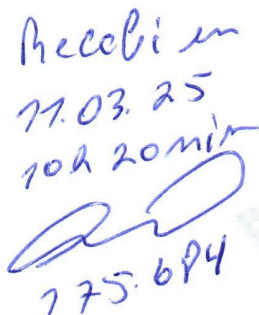 Recebi em
11.03.25
10h 20min
175.684